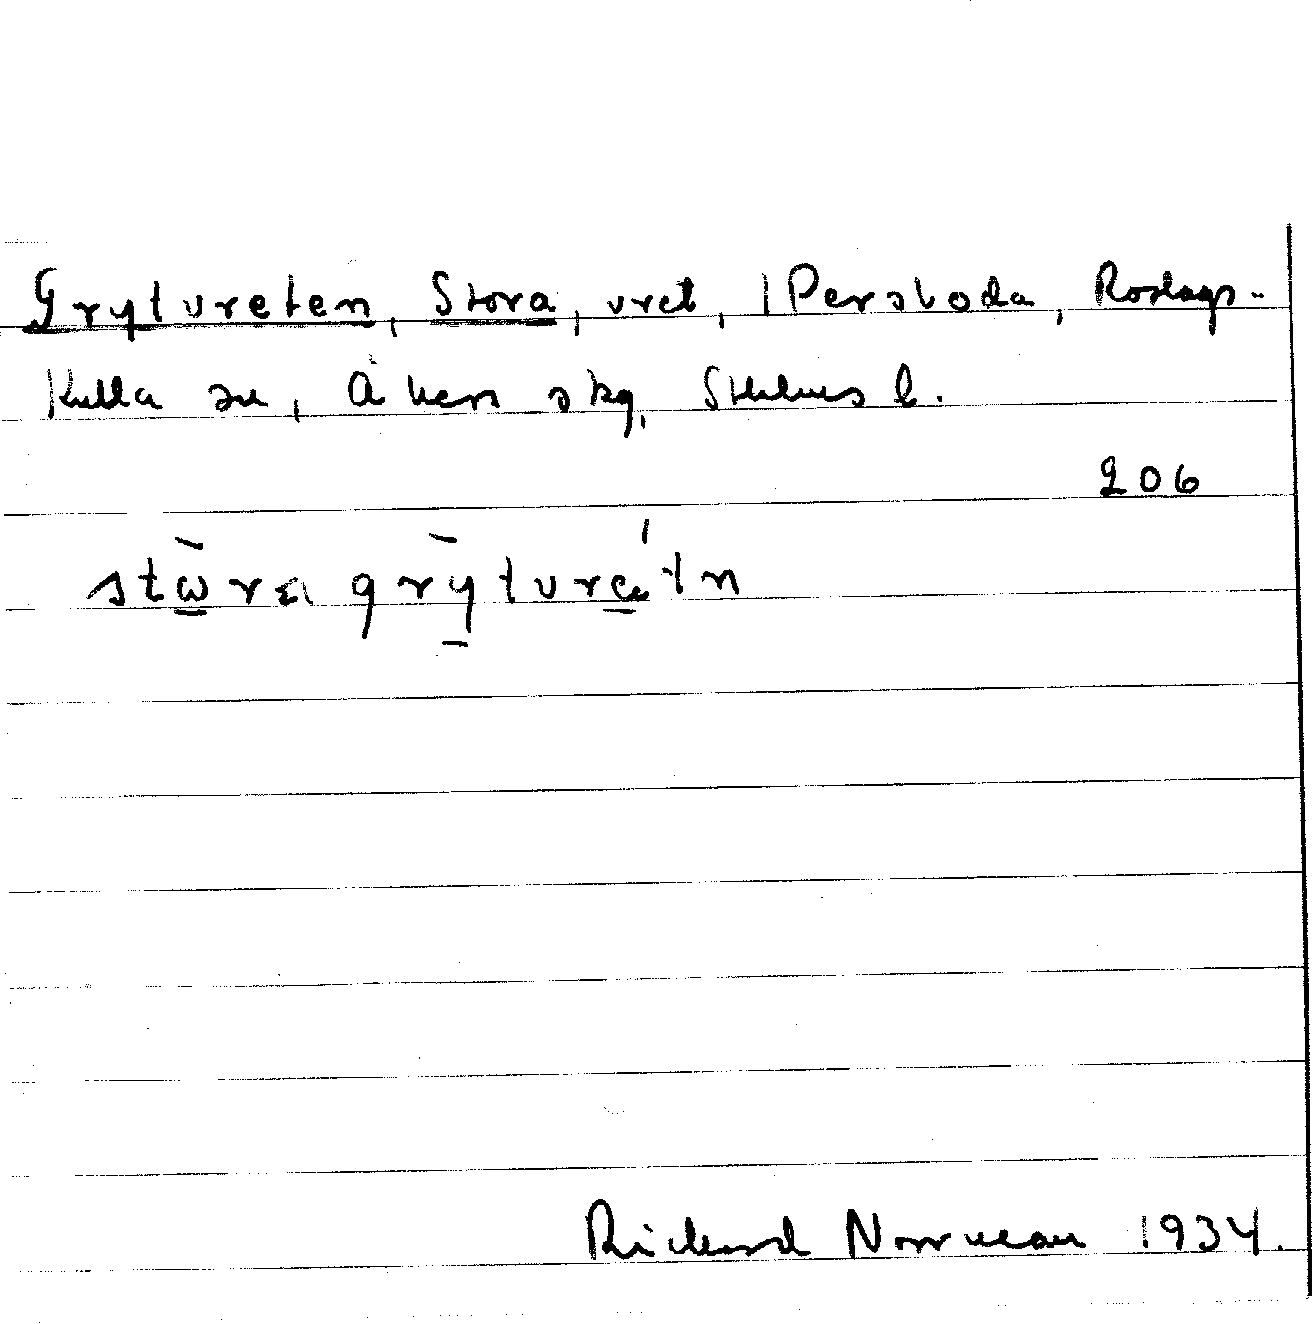 Grytvreten, Stora, vret, Persboda, Roslags-
Kulla sn, Åkers skg, Sthlms l.
206
stωra grytvrætn
Rickard Norrman 1934.